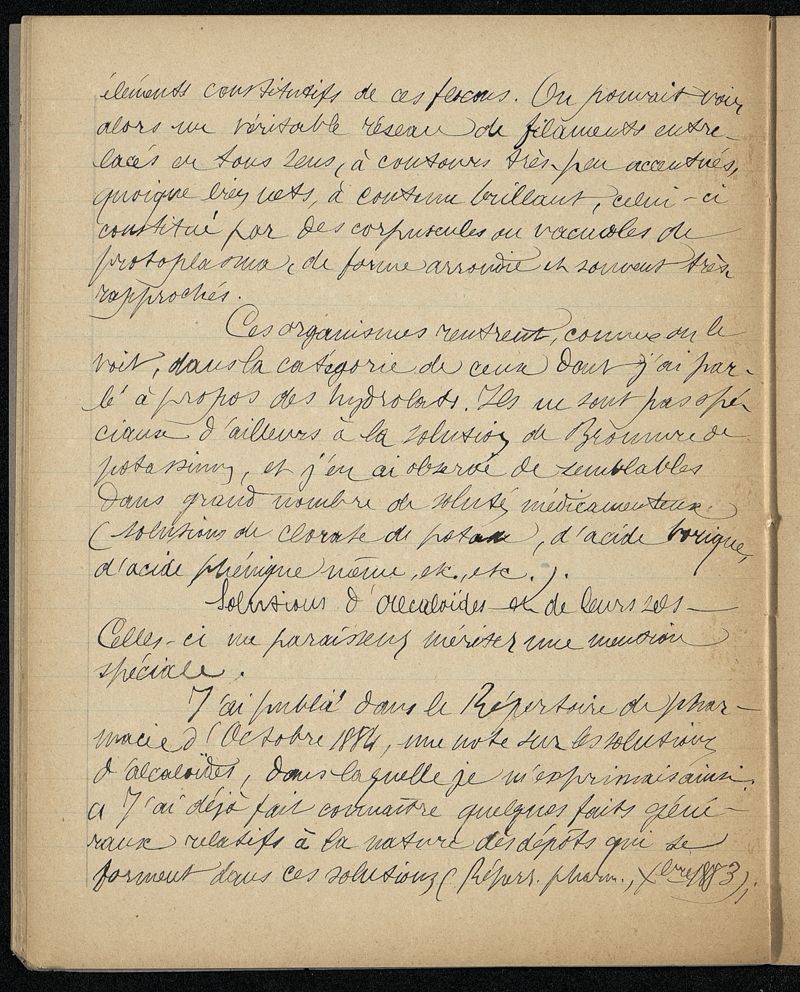 éléments constitutifs de ces flocons. On pouvait voir
alors un véritable réseau de filaments entre-
lacés en tous sens, à contours très peu accentués,
quoique bien nets, à contenu brillant, celui-ci
constitué par des corpuscules ou vacuoles de
protoplasma, de forme arrondie et souvent très
rapprochés.
Ces organismes rentrent, comme on le
voit, dans la catégorie de ceux dont j'ai par-
lé à propos des hydrolats. Ils ne sont pas spé-
ciaux d'ailleurs à la solution de Bromure de
potassium, et j'en ai observé de semblables
dans grand nombre de solutés médicamenteux
(solutions de clorate de potasse, d'acide borique,
d'acide phénique même, etc., etc.).
Solutions d'alcaloïdes et de leurs sels —
Celles-ci me paraissent mériter une mention
spéciale.
J'ai publié dans le Répertoire de phar-
macie d'Octobre 1884, une note sur les solutions
d'alcaloïdes, dans laquelle je m'exprimais ainsi:
« J'ai déjà fait connaître quelques faits géné-
raux relatifs à la nature des dépôts qui se
forment dans ces solutions (Répert. pharm., Xbre 1883),